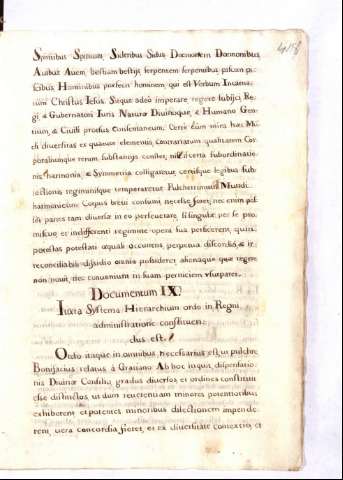 4158
Spiritibus Spiritum, Sideribus Sidus, Daemonem Daemonibus,
Avibus Avem, bestiam bestijs, serpentem serpentibus, piscem pi-
scibus, Hominibus praefecit hominem, qui est Verbum Incarna-
tum Christus Iesus. Sicque adeò imperare, regere subijci, Re-
gi, & Gubernatori Iuris Naturae Divinoque, & Humano Gen-
tium, & Civili prorsus Consentaneum. Certè cùm mira haec Mun-
di diversitas ex quatuor elementis, Contrariarum qualitatum Cor-
poraliumque rerum substantijs constet, nisi certa subordinatio-
nis harmonia, & Symmetria colligaretur, certisque legibus sub-
iectionis regiminisque temperaretur Pulcherrimum Mundi
harmonicum Corpus brevi consumi necesse foret; nec enim pos-
set partes tam diversae in eo perseverare, si singulae per se pro-
miscue, et indifferenti regimine opera sua perficerent, quin
potestas potestati aequali occurrens, perpetua discordia, & ir-
reconciliabili dissidio omnia possideret, alienaque quae regere
non novit, nec convenium in suam perniciem usurparet.
Documentum IX.
Iuxta Systema Hierarchium ordo in Regni
administratione constituen-
dus est.
Ordo itaque in omnibus necessarius est, ut pulchre
Bonifacius relatus à Gratiano Ad hoc inquit dispensatio-
nis Divinae Consilio, gradus diversos et ordines constituit
esse distinctos, ut dum reverentiam minores potentioribus
exhiberent, et potentes minoribus dilectionem impende-
rent, vera concordia fieret, et ex diversitate contextio, et